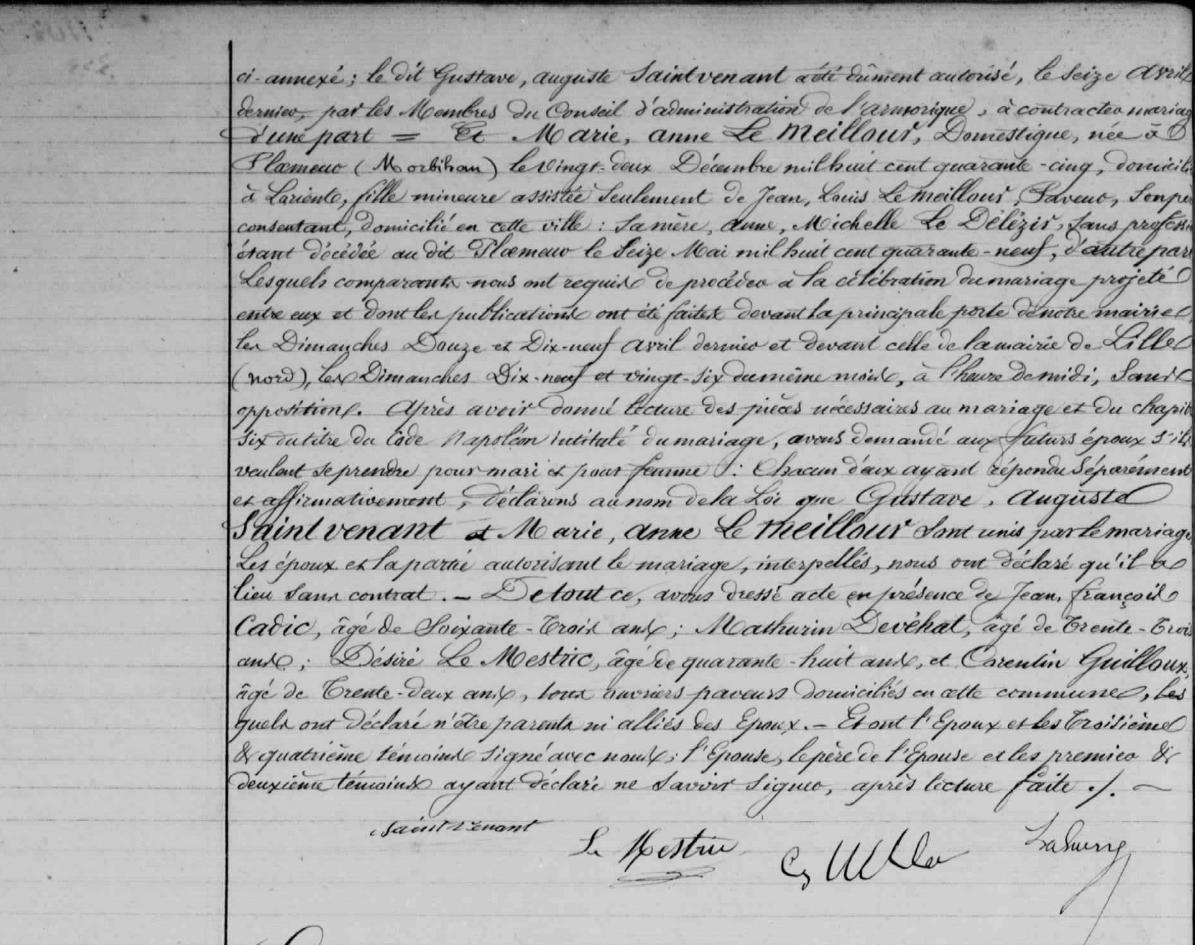 ci-annexé; le dit Gustave, auguste Saintvenant a été dûment autorisé, le seize avril
dernier, par les Membres du Conseil d'administration de l'armorique, à contracter mariage
d'une part = Et Marie, anne Le Meillour, Domestique, née à
Ploemeur (Morbihan) le vingt-deux Décembre mil huit cent quarante-cinq, domicili
à Lorient, fille mineure assistée seulement de Jean, Louis Le Meillour, Paveur, son père
consentant, domicilié en cette ville : Sa mère, anne, Michelle Le Délézir, sans professi
étant décédée au dit Ploemeur le Seize Mai mil huit cent quarante-neuf, d'autre part
Lesquels comparants nous ont requis de procéder à la célébration du mariage projeté
entre eux et dont les publications ont été faites devant la principale porte de notre mairie,
les Dimanches Douze et Dix-neuf avril dernier et devant celle de la mairie de Lille
(nord), les Dimanches Dix-neuf et vingt-six du même mois, à l'heure de midi, Sans
opposition. Après avoir donné lecture des pièces nécessaires au mariage et du chapit
six du titre du Code Napoléon intitulé du mariage, avons demandé aux futurs époux s'ils
veulent se prendre pour mari et pour femme : Chacun d'eux ayant répondu Séparément
et affirmativement, déclarons au nom de la Loi que Gustave, auguste
Saintvenant et Marie, anne Le Meillour sont unis par le mariage
Les époux et la partie autorisant le mariage, interpellés, nous ont déclaré qu'il a
lieu sans contrat. – De tout ce, avons dressé acte en présence de Jean, françois
Cadic, âgé de Soixante-Trois ans; Mathurin Dévéhat, âgé de Trente-Trois
ans; Désiré Le Mestric, âgé de quarante-huit ans, et Corentin Guilloux,
âgé de Trente-deux ans, tous ouvriers paveurs domiciliés en cette commune, les
quels ont déclaré n'être parents ni alliés des Epoux. – Et ont l'Epoux et les Troisième
& quatrième témoins signé avec nous; l'Epouse, le père de l'Epouse et les premier &
deuxième témoins ayant déclaré ne savoir signer, après lecture faite ./. –
Saintvenant
Le Mestric